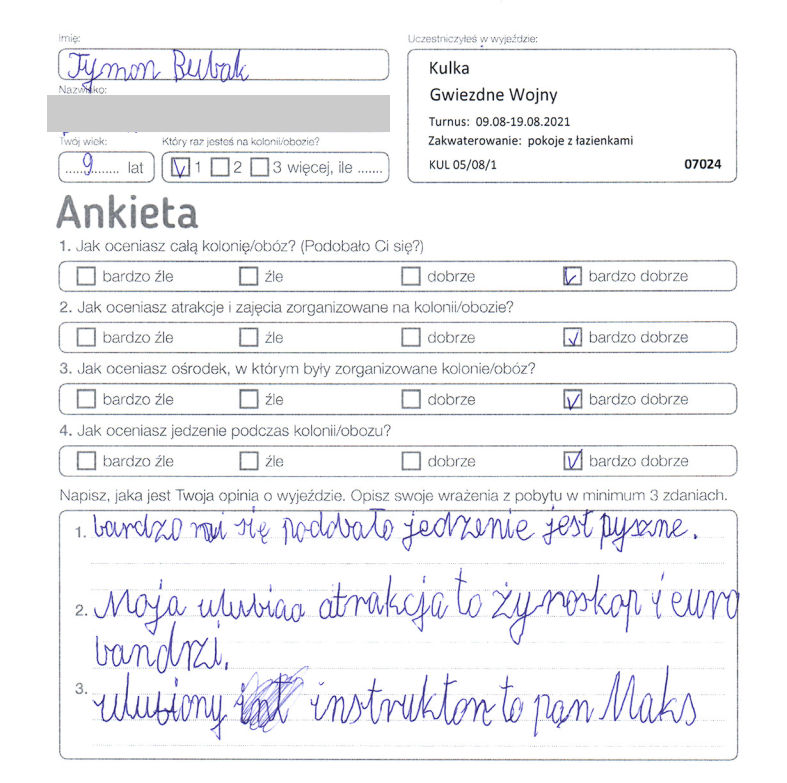 Imię:
Tymon Bubak
Nazwisko:
Twój wiek:
9 lat
Który raz jesteś na kolonii/obozie?
1 2 3 więcej, ile .......
Uczestniczyłeś w wyjeździe:
Kulka
Gwiezdne Wojny
Turnus: 09.08-19.08.2021
Zakwaterowanie: pokoje z łazienkami
KUL 05/08/1 07024
Ankieta
1. Jak oceniasz całą kolonię/obóz? (Podobało Ci się?)
bardzo źle źle dobrze bardzo dobrze
2. Jak oceniasz atrakcje i zajęcia zorganizowane na kolonii/obozie?
bardzo źle źle dobrze bardzo dobrze
3. Jak oceniasz ośrodek, w którym były zorganizowane kolonie/obóz?
bardzo źle źle dobrze bardzo dobrze
4. Jak oceniasz jedzenie podczas kolonii/obozu?
bardzo źle źle dobrze bardzo dobrze
Napisz, jaka jest Twoja opinia o wyjeździe. Opisz swoje wrażenia z pobytu w minimum 3 zdaniach.
1. bardzo mi się poddbało jedzenie jest pyszne.
2. Moja ulubiaa atrakcja to żyroskop i euro
bandrzi.
3. ulubiony instruktor to pan Maks